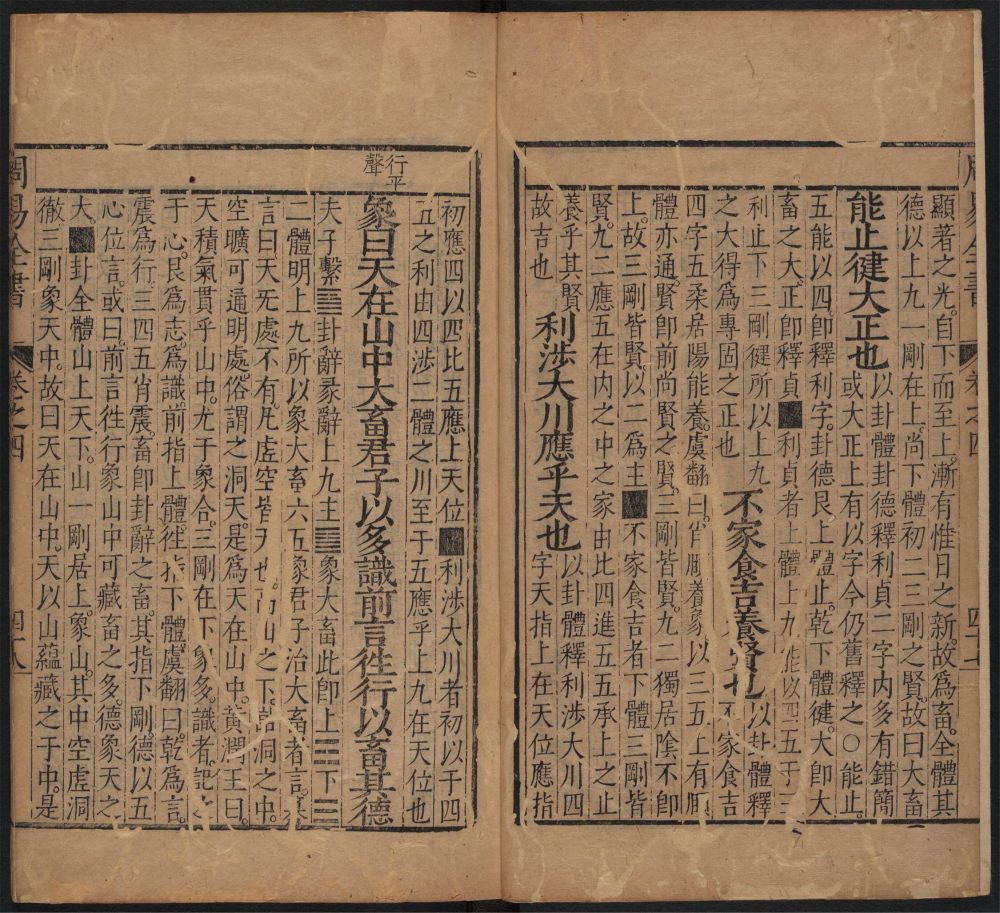 顯著之光。自下而至上。漸有惟日之新。故爲畜。全體其
德以上九一剛在上。尚下體初二三剛之賢。故曰大畜
能止健大正也 以卦體卦德釋利貞二字内多有錯簡
或大正上有以字今仍舊釋之〇能止。
五能以四。卽釋利字。卦德艮上體止。乾下體健。大卽大
畜之大。正卽釋貞■利貞者上體上九能以四五于三
利止下三剛健所以上九
之大得爲專固之正也 不家食吉養賢也 以卦體釋
不家食吉
四字五柔居陽能養。虞翻曰。頤養象以三五上有頤
體亦通。賢卽前尚賢之賢。三剛皆賢。九二獨居陰不卽
上。故三剛皆賢。以二爲主■不家食吉者下體三剛皆
賢。九二應五在内之中之家由比四進五五承上之止
養乎其賢
故吉也 利涉大川應乎天也 以卦體釋利涉大川四
字天指上在天位應指
初應四以四比五應上天位■利涉大川者初以于四
五之利由四涉二體之川至于五應乎上九在天位也
行平
聲
象曰天在山中大畜君子以多識前言徃行以畜其德
夫子繫䷙卦辭彖辭上九主䷙象大畜此卽上☶下☰
二體明上九所以象大畜六五象君子治大畜者言
言曰天无處不有。凡虚空皆天也。山之下。謂洞之中。
空曠可通明處。俗謂之洞天。是爲天在山中。黄潤玉曰。
天積氣貫乎山中。尤于象合。三剛在下象多。識者。記之
于心。艮爲志。爲識前指上體。徃指下體。虞翻曰。乾爲言。
震爲行。三四五肖震畜卽卦辭之畜。其指下剛。德以五
心位言。或曰。前言徃行象山中可藏畜之多。德象天之
大。■卦全體山上天下。山一剛居上。象山。其中空虚洞
徹三剛象天中。故曰天在山中。天以山蘊藏之于中。是
周易全書 卷之四 四十七
周易全書 卷之四 四十八